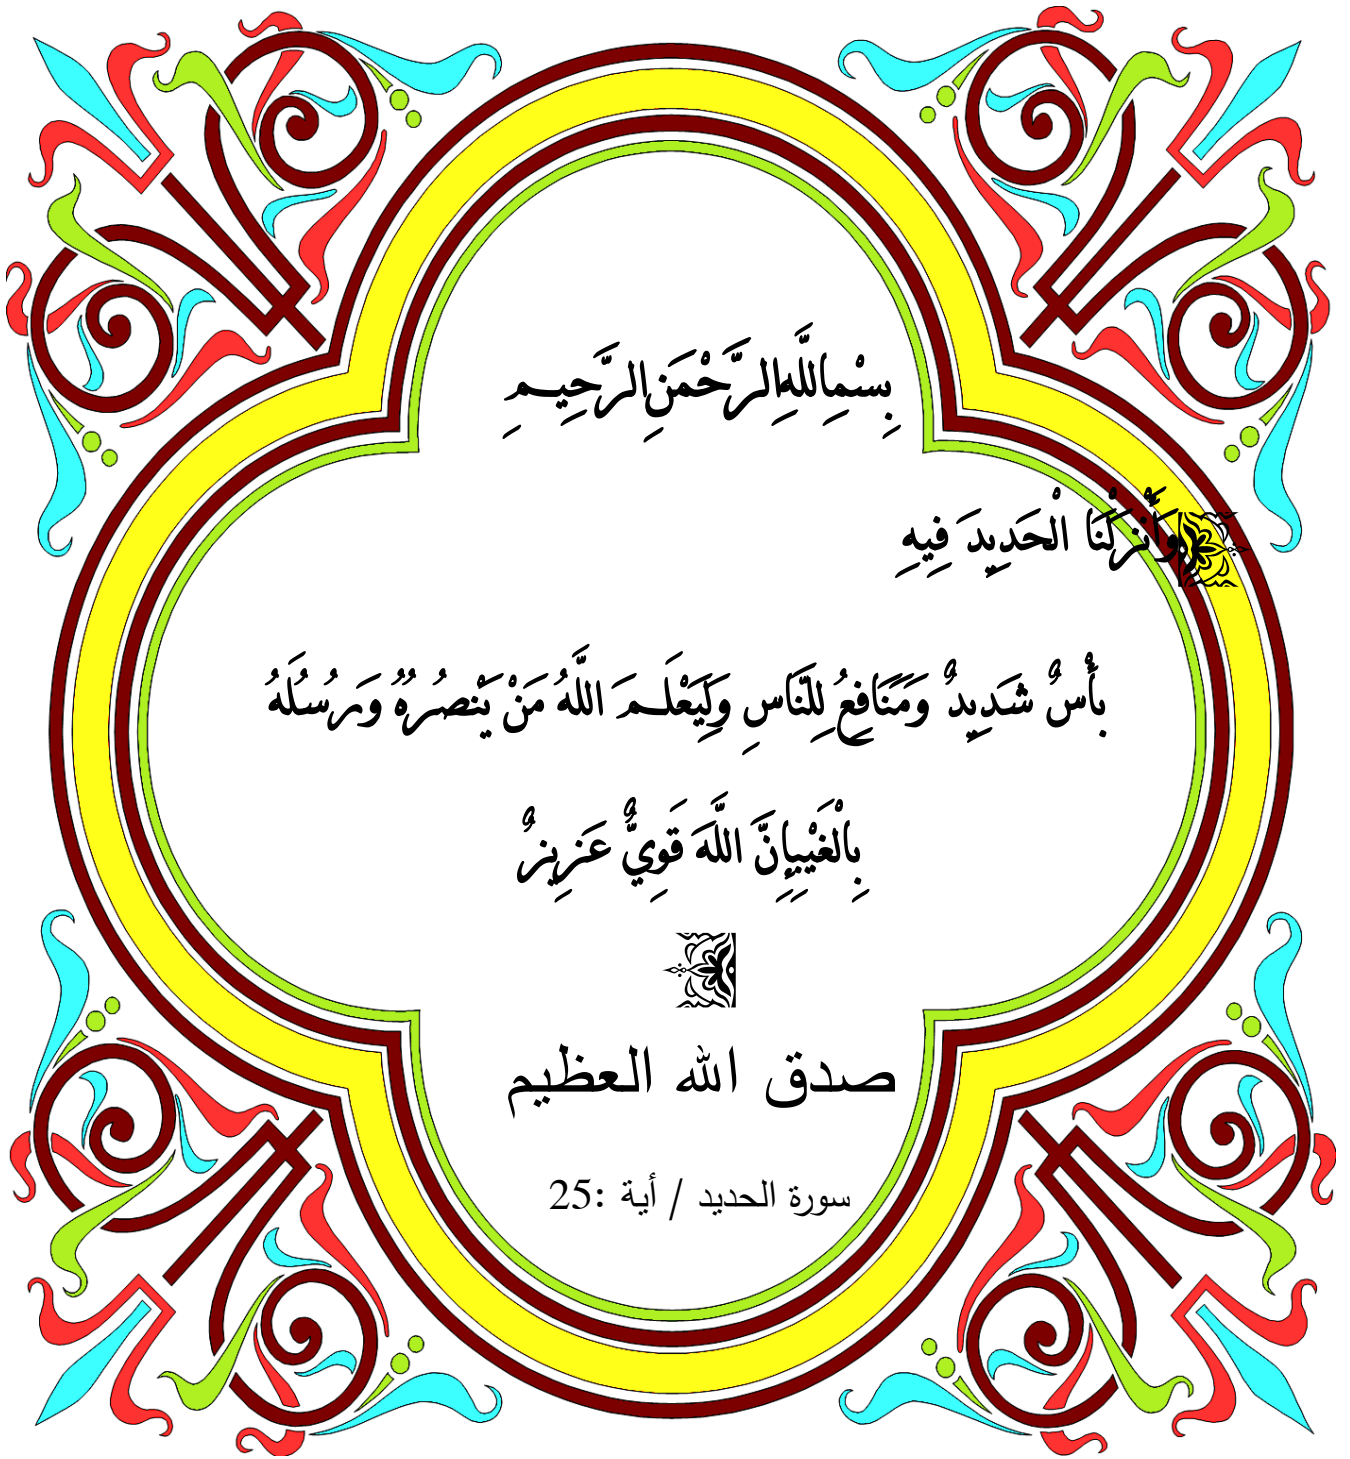 بِسْمِاللَّهِالرَّحْمَنِالرَّحِيمِ
وَأَنْزَلْنَا الْحَدِيدَ فِيهِ
بأْسٌ شَدِيدٌ وَمَنَافِعُ لِلنَّاسِ وَلِيَعْلَمَ اللَّهُ مَنْ يَنْصُرُهُ وَرُسُلَهُ
بِالْغَيْبِإِنَّ اللَّهَ قَوِيٌّ عَزِيزٌ
صدق الله العظيم
سورة الحديد / أية :25